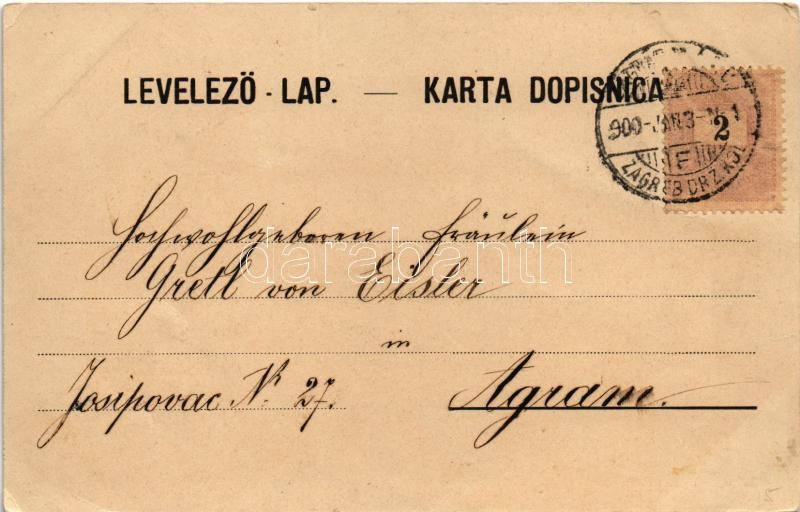 LEVELEZŐ - LAP. — KARTA DOPISNICA
900-JAN.3-N.1
2
ZAGREB DRZ. KOL
Hochwohlgeboren Fräulein
darabanth
Gretl von Eisler
in
Josipovac N. 27.
Agram.